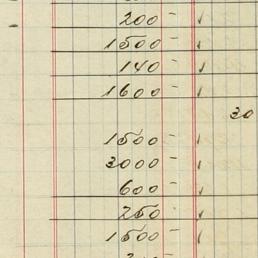 200 -
1500 -
140 -
1600 -
30
1500 -
3000 -
600 -
250 -
1500 -